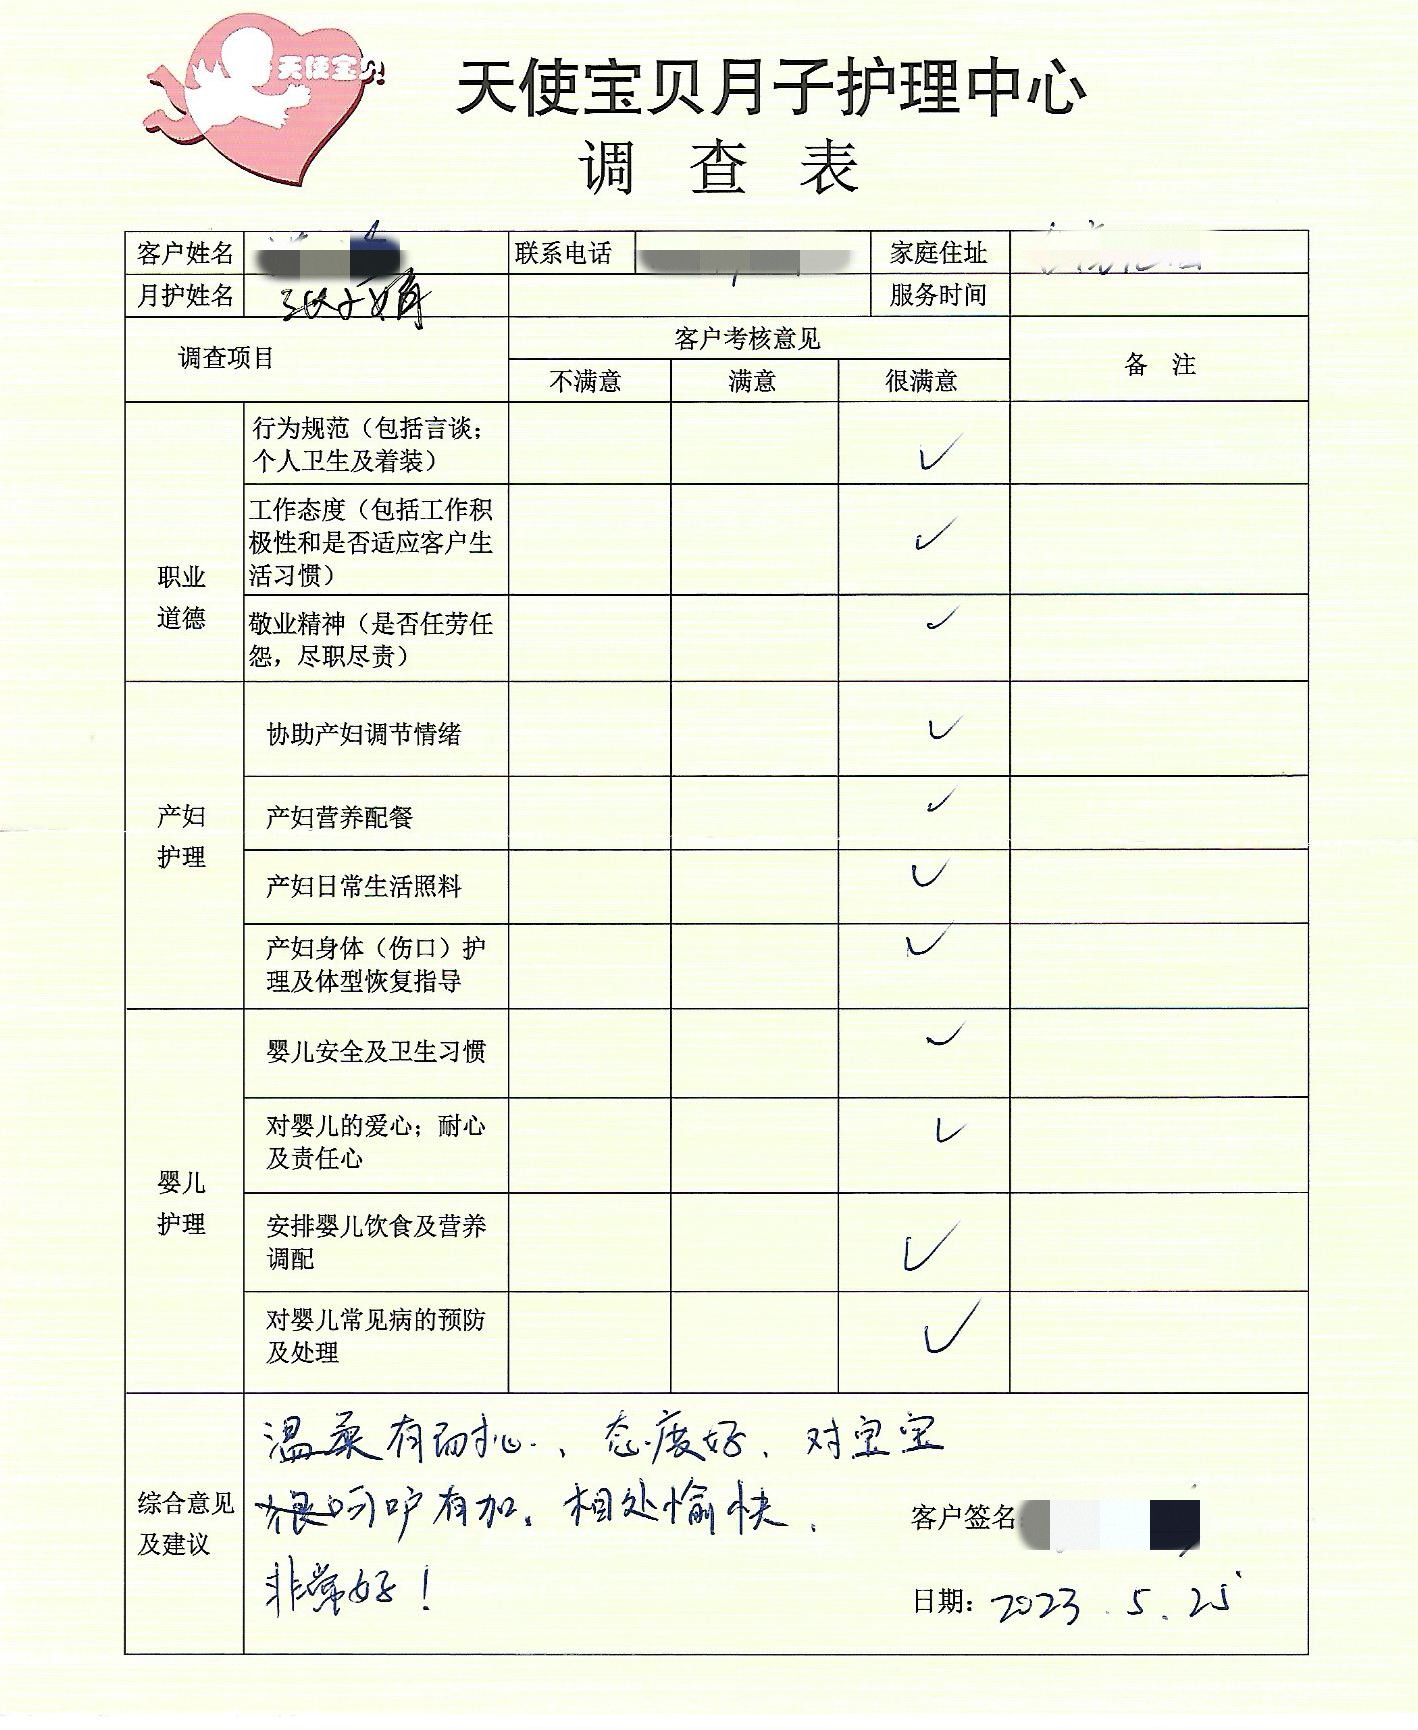 天使宝贝
天使宝贝月子护理中心
调查表
客户姓名 联系电话 家庭住址
月护姓名 服务时间
调查项目 客户考核意见 备注
不满意 满意 很满意
职业
道德
行为规范（包括言谈；
个人卫生及着装）
✓
工作态度（包括工作积
极性和是否适应客户生
活习惯）
✓
敬业精神（是否任劳任
怨，尽职尽责）
✓
产妇
护理
协助产妇调节情绪 ✓
产妇营养配餐 ✓
产妇日常生活照料 ✓
产妇身体（伤口）护
理及体型恢复指导
✓
婴儿
护理
婴儿安全及卫生习惯 ✓
对婴儿的爱心；耐心
及责任心
✓
安排婴儿饮食及营养
调配
✓
对婴儿常见病的预防
及处理
✓
综合意见
及建议
温柔有耐心、态度好、对宝宝
呵护有加，相处愉快，
非常好！
客户签名
日期：2023.5.25